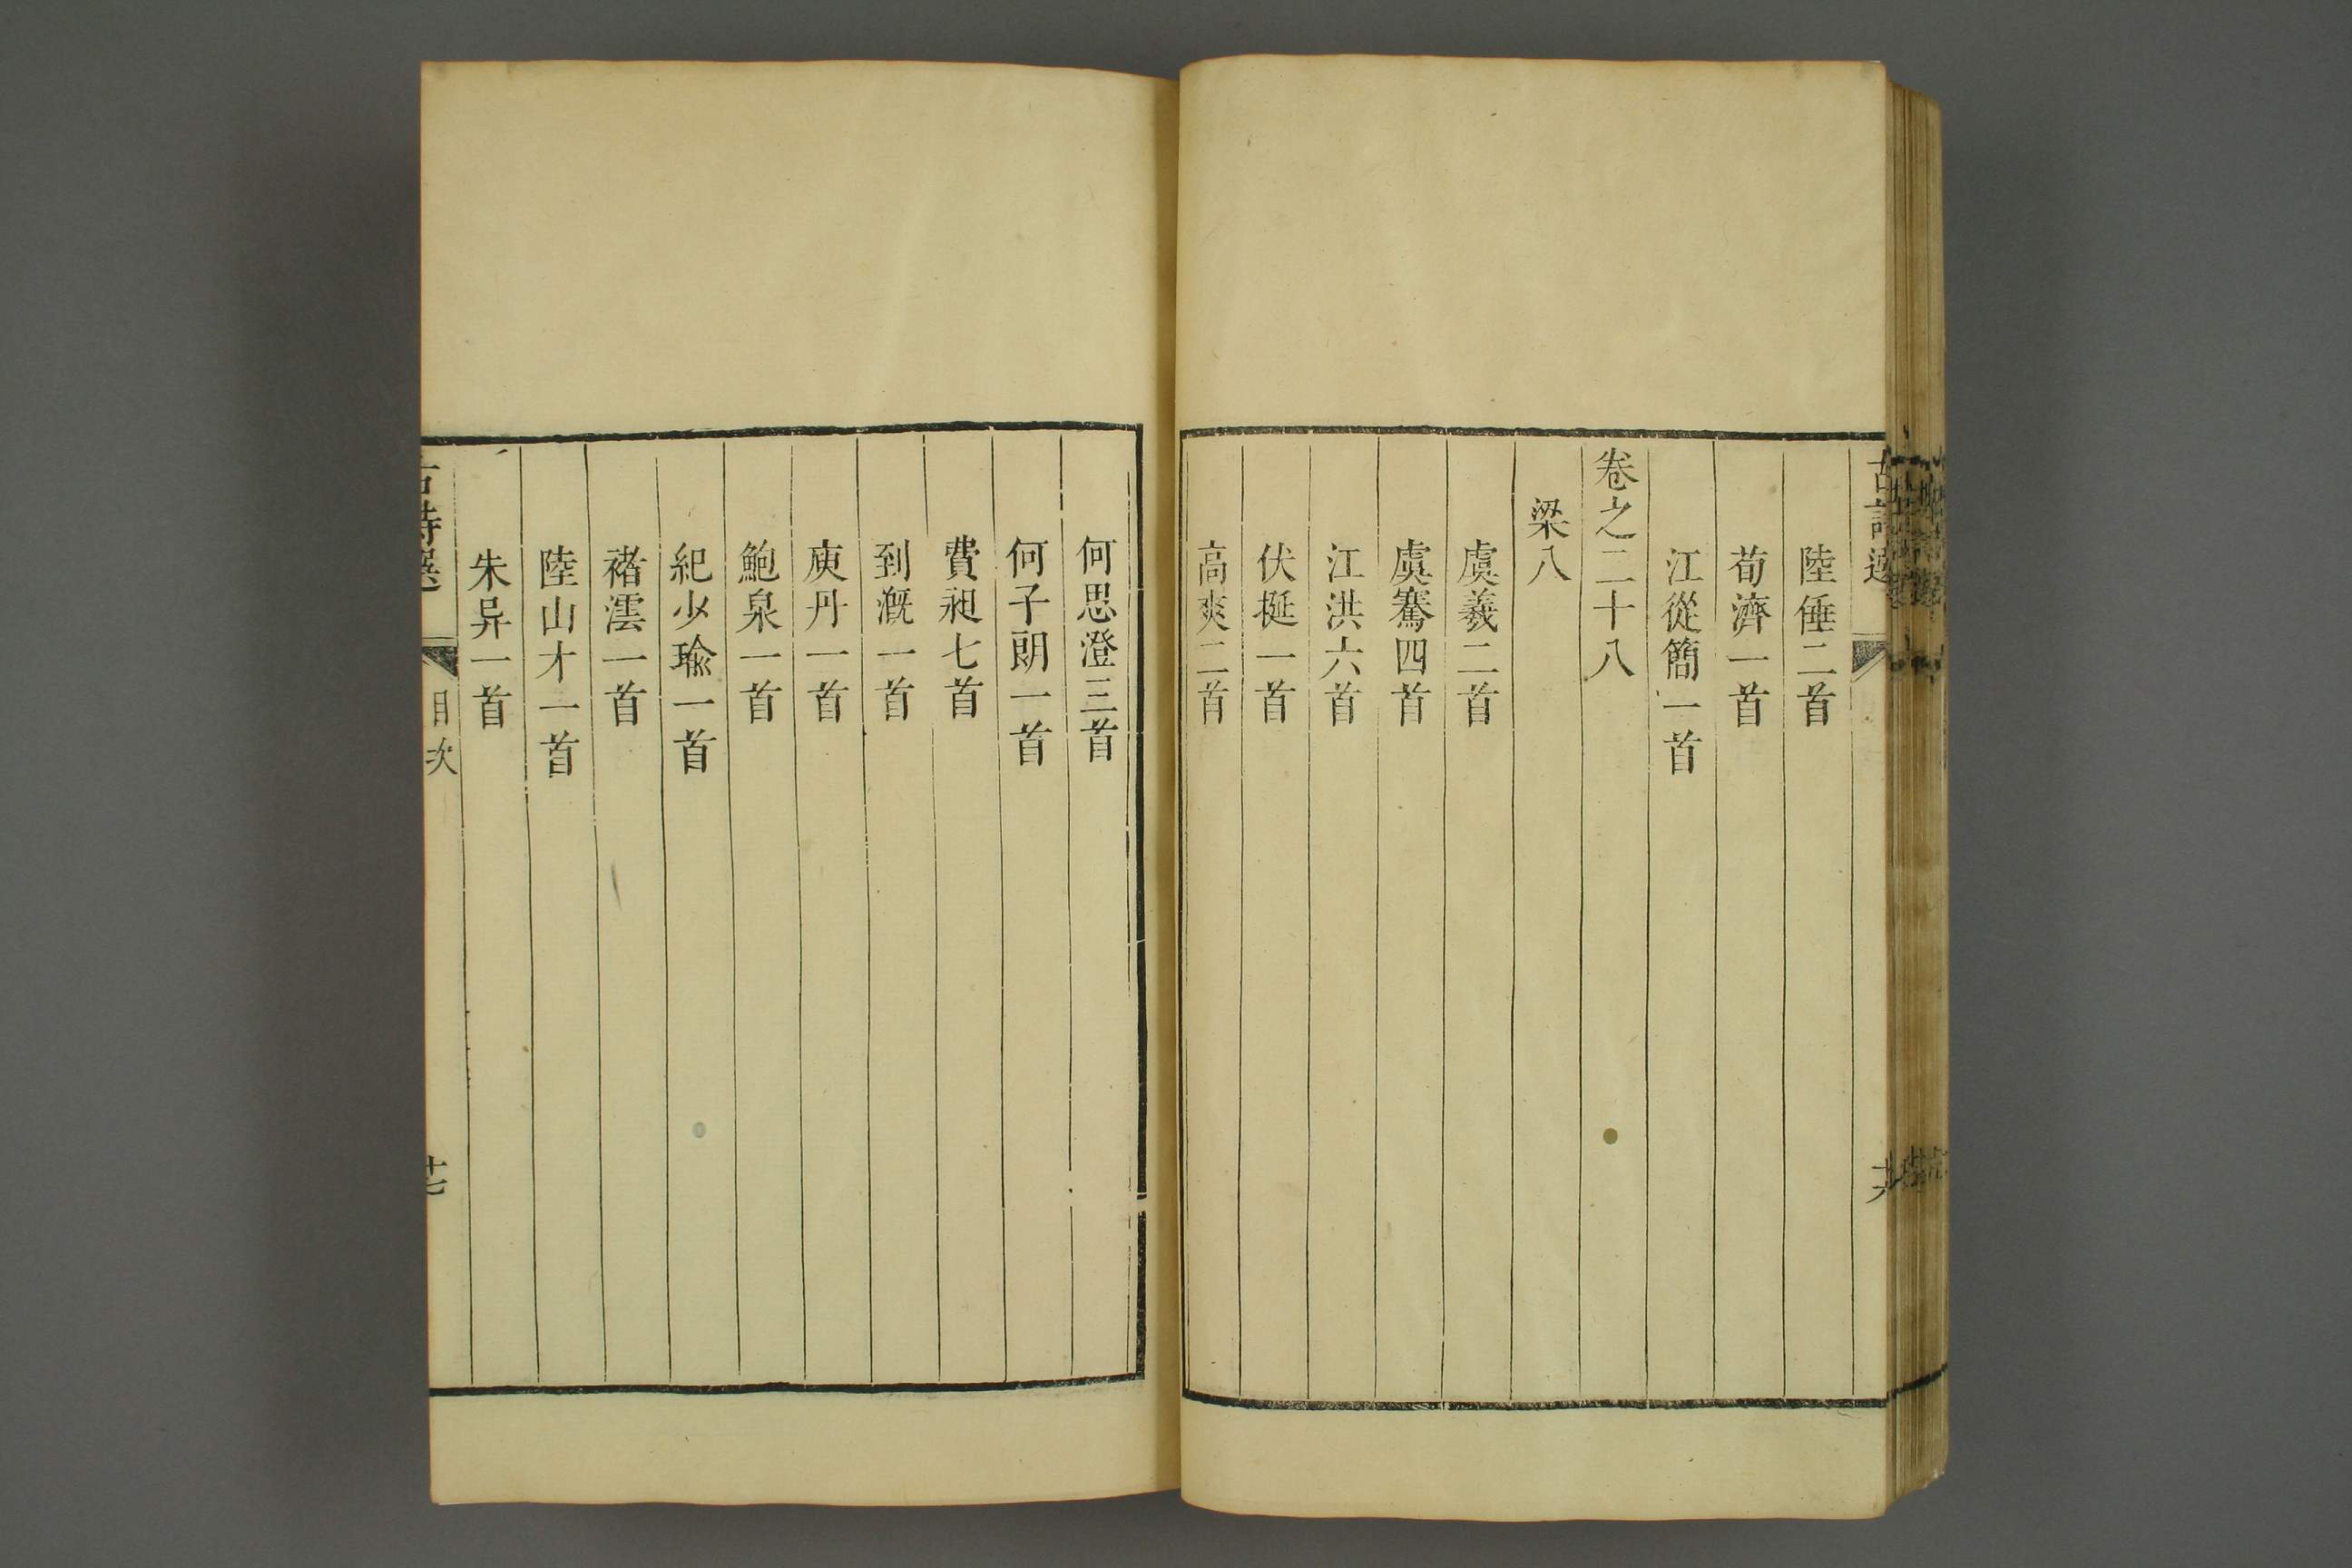 陸倕二首
荀濟一首
江從簡一首
卷之二十八
梁八
虞羲二首
虞騫四首
江洪六首
伏挺一首
高爽二首
何思澄三首
何子朗一首
費昶七首
到溉一首
庾丹一首
鮑泉一首
紀少瑜一首
褚澐一首
陸山才一首
朱异一首
古詩選
目次